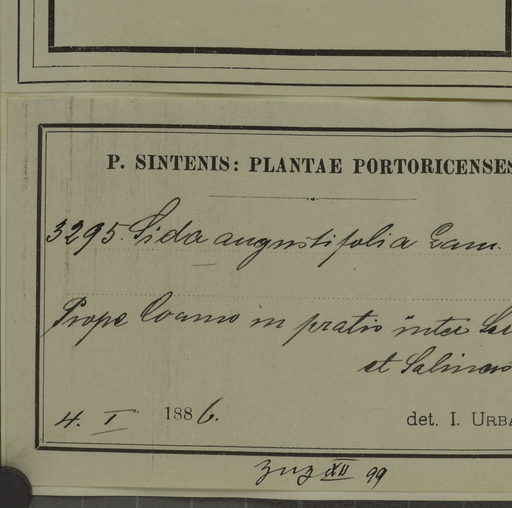 P. SINTENIS: PLANTAE PORTORICENSES
3295. Sida angustifolia Lam.
Prope Coamo in pratis inter
et Salinas
4. I 1886.
det. I. URBA
XII 99